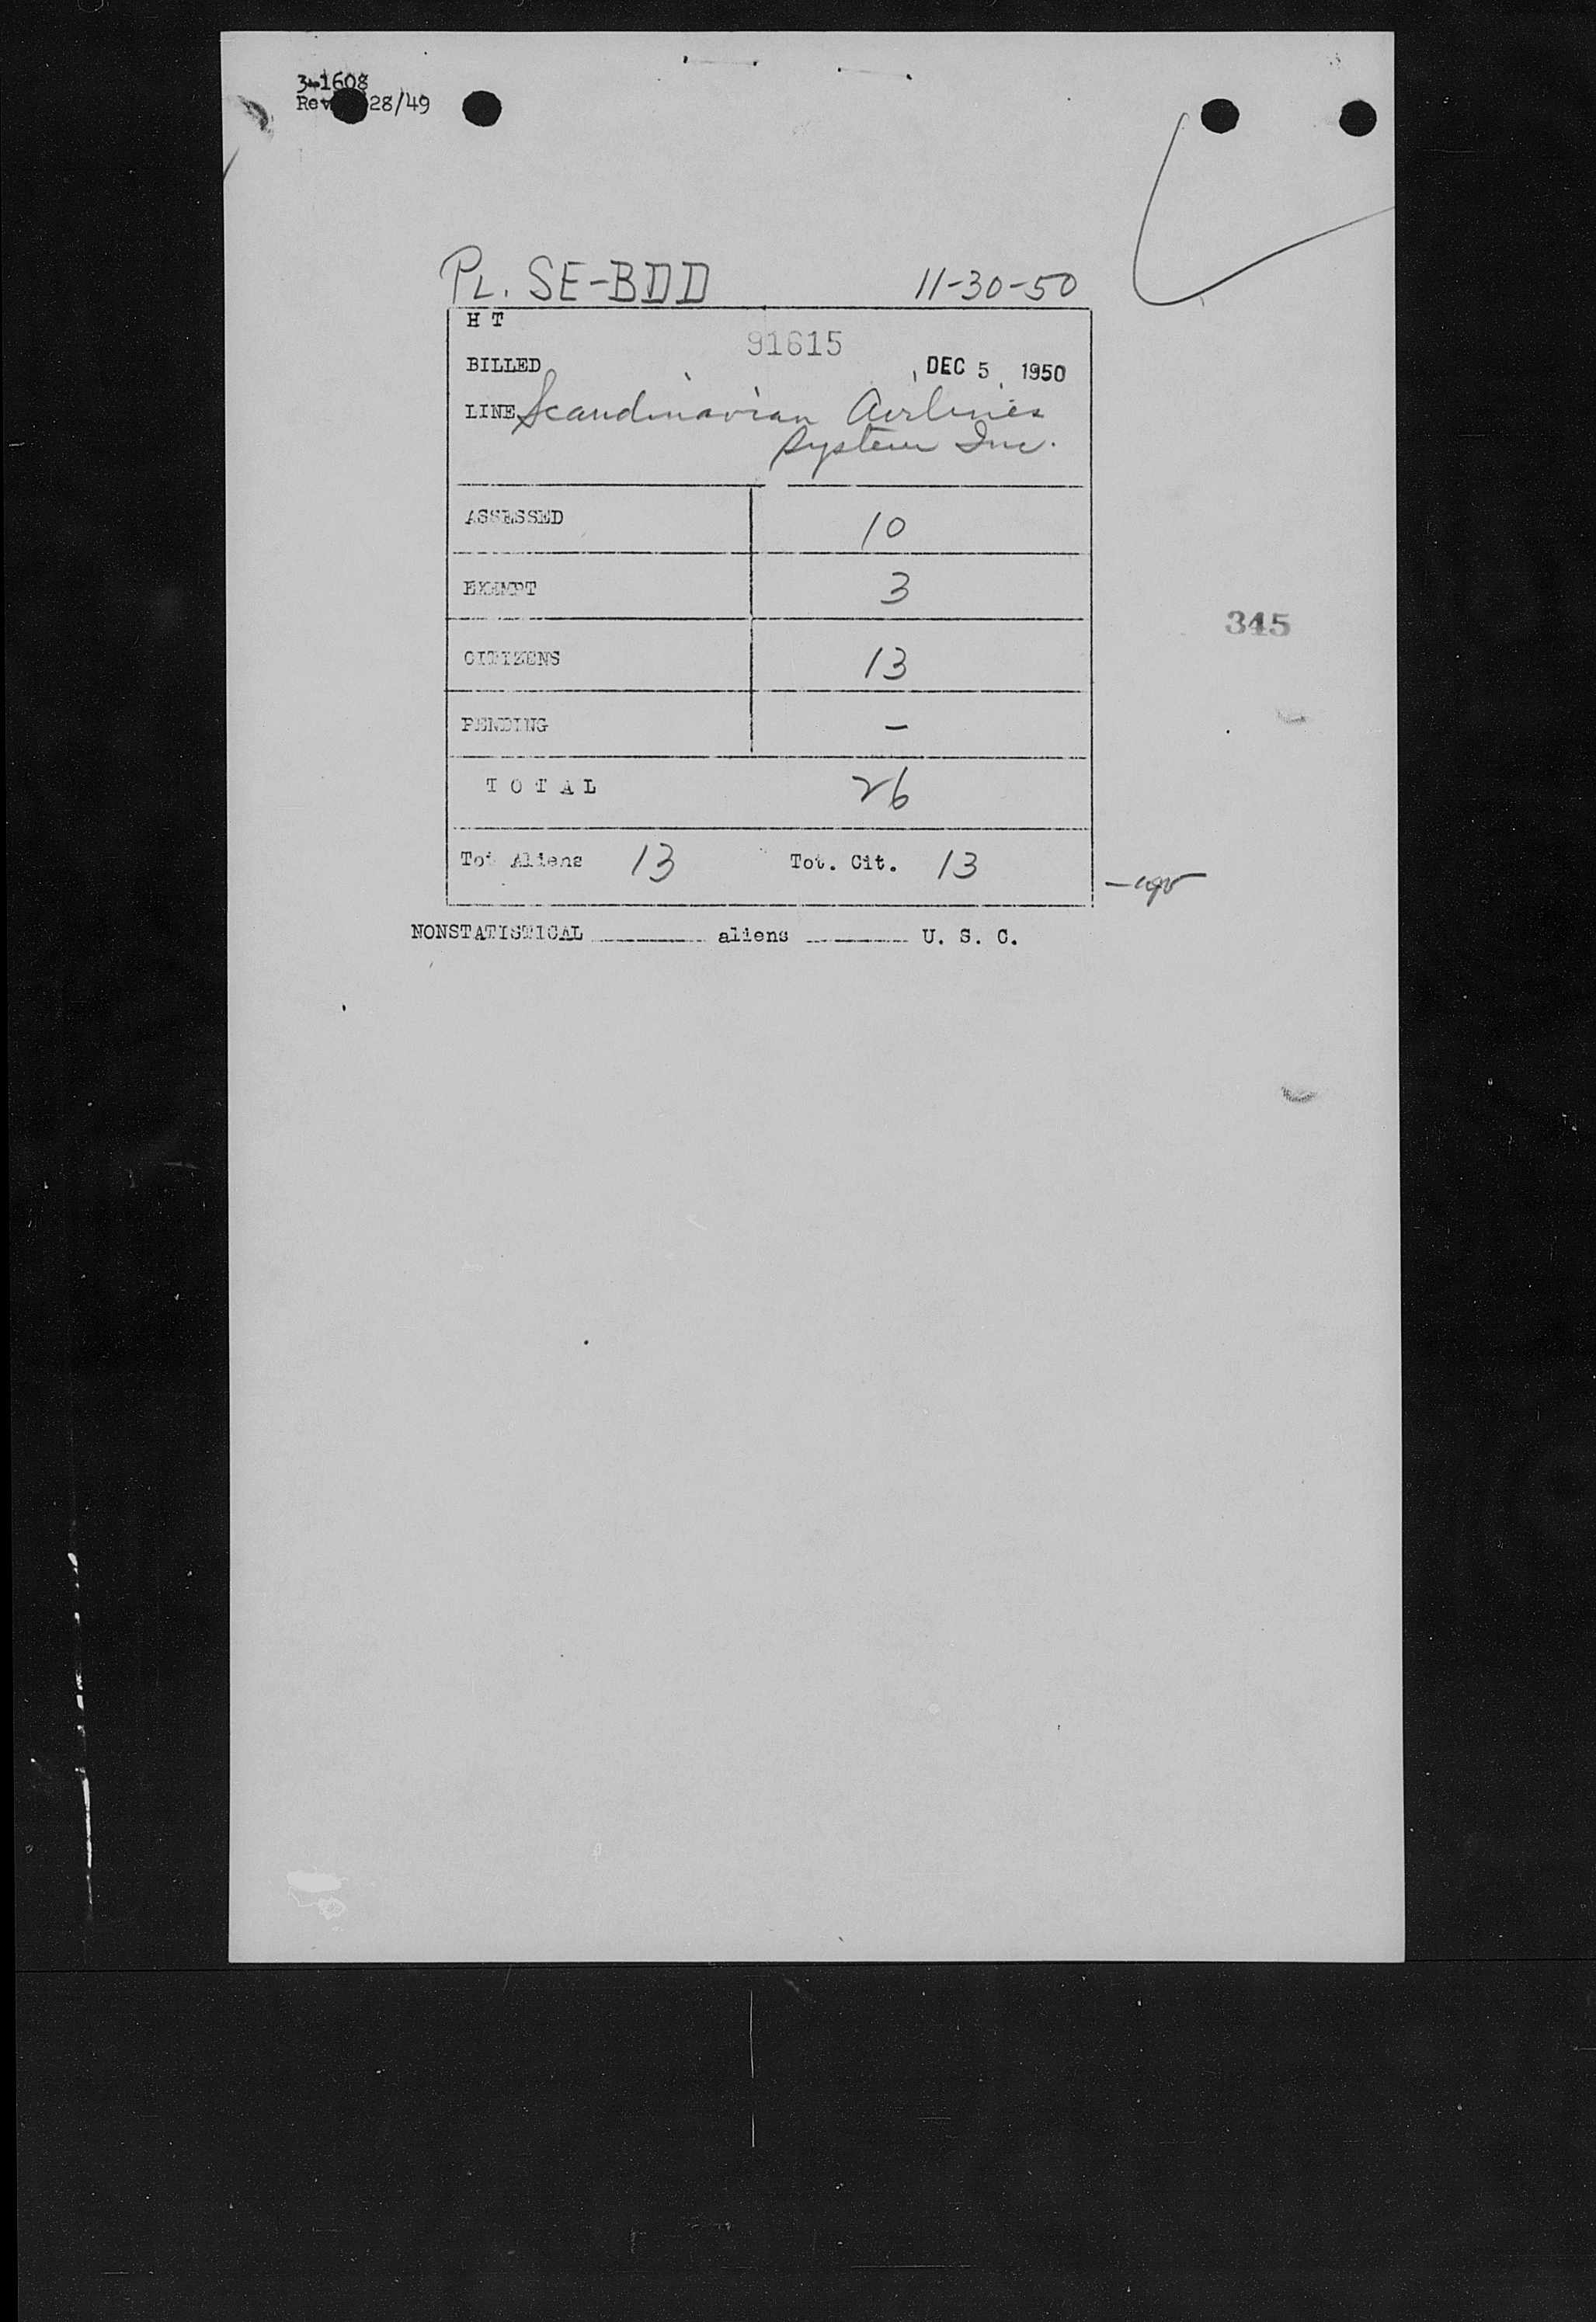 3-1608
Rev 28/49
PL. SE-BDD 11-30-50
H T
91615
BILLED DEC 5 1950
LINE Scandinavian Airlines
System Inc.
ASSESSED 10
EXEMPT 3
345
CITIZENS 13
PENDING –
T O T A L 26
Tot Aliens 13 Tot. Cit. 13
NONSTATISTICAL ________ aliens ________ U. S. C.